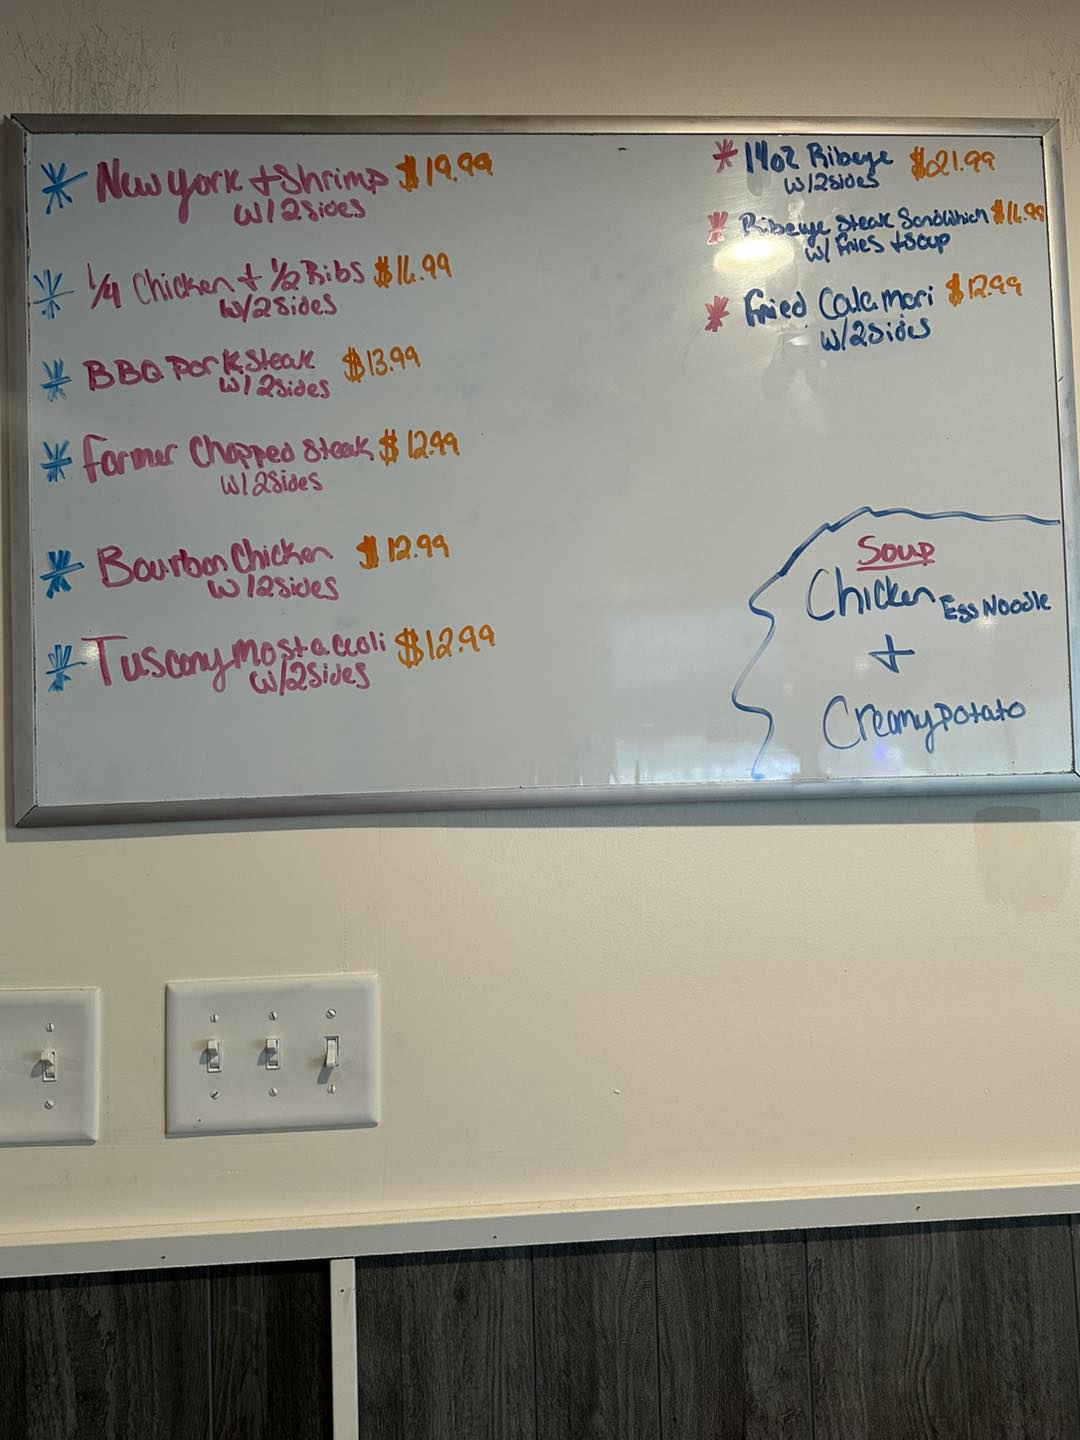 * New York + Shrimp $19.99
w/ 2 sides
* 1/4 Chicken + 1/2 Ribs $16.99
w/ 2 sides
* BBQ Pork Steak $13.99
w/ 2 sides
* Farmer Chopped Steak $12.99
w/ 2 sides
* Bourbon Chicken $12.99
w/ 2 sides
* Tuscany Mostaccoli $12.99
w/ 2 sides
* 14oz Ribeye $21.99
w/ 2 sides
* Ribeye Steak Sandwhich $16.99
w/ Fries + Soup
* Fried Calamari $12.99
w/ 2 sides
Soup
Chicken Egg Noodle
+
Creamy Potato